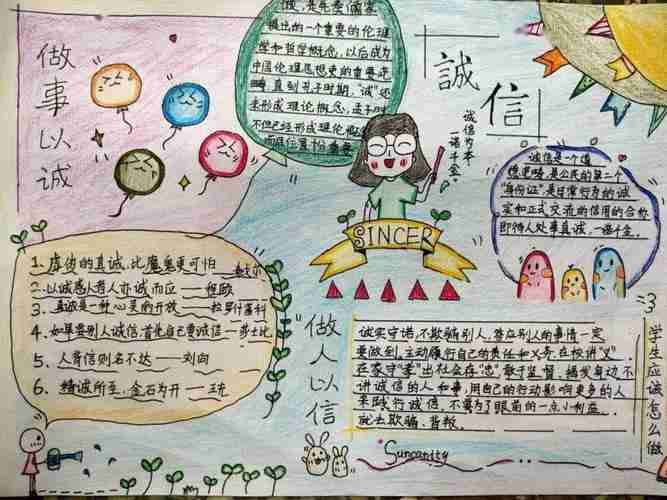 做事以诚
诚，是先秦儒家
提出的一个重要的伦理
学和哲学概念，以后成为
中国伦理思想史的重要范
畴。直到孔子时期，"诚"还
未形成理论概念。孟子时
不但已经形成理论概念
而且位置相当重要
誠信
诚信为本
一诺千金。
诚信是一个道
德范畴，是公民的第二个
"身份证"是日常行为的诚
实和正式交流的信用的合称
即待人处事真诚、一诺千金。
SINCER
1. 虚伪的真诚，比魔鬼更可怕
2. 以诚感人者人亦诚而应——程颐
3. 真诚是一种心灵的开放——拉罗什富科
4. 如果要别人诚信，首先自己要诚信——莎士比
5. 人背信则名不达——刘向
6. 精诚所至，金石为开——王充
"做人以信
诚实守诺，不欺骗别人，答应别人的事情一定
要做到，主动履行自己的责任和义务，在校讲"义"
在家守"孝"出社会在"忠"，敢于监督、揭发身边不
讲诚信的人和事，用自己的行动影响更多的人
来践行诚信，不要为了眼前的一点小利益
就去欺骗、背叛。
学生应诚怎么做
Suncanity